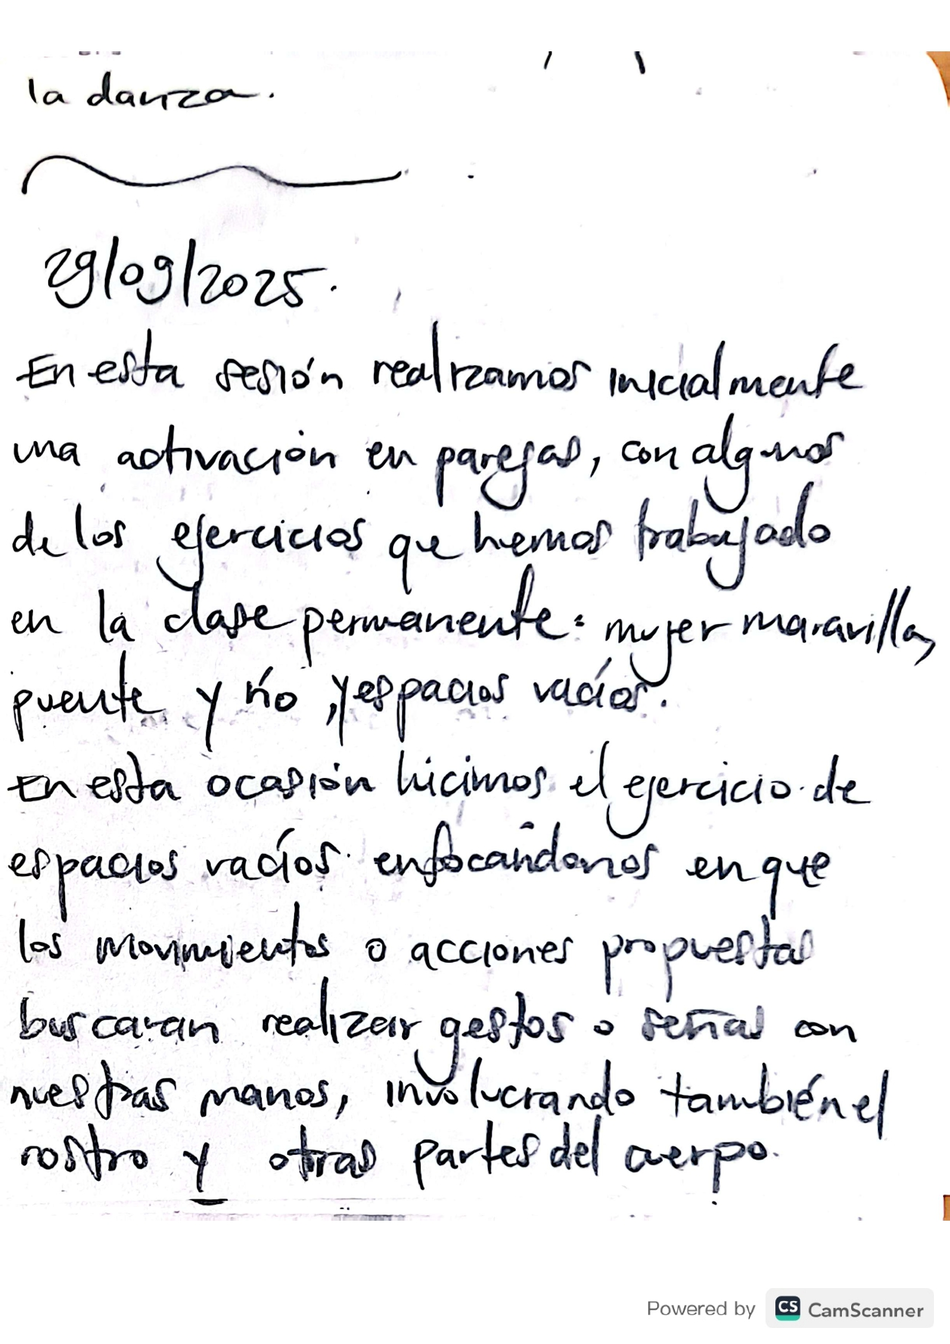 la danza.
29/09/2025.
En esta sesión realizamos inicialmente
una activación en parejas, con algunos
de los ejercicios que hemos trabajado
en la clase permanente: mujer maravilla,
puente y río, y espacios vacíos.
En esta ocasión hicimos el ejercicio de
espacios vacíos enfocándonos en que
los movimientos o acciones propuestas
buscaran realizar gestos o señas con
nuestras manos, involucrando también el
rostro y otras partes del cuerpo.
Powered by CS CamScanner